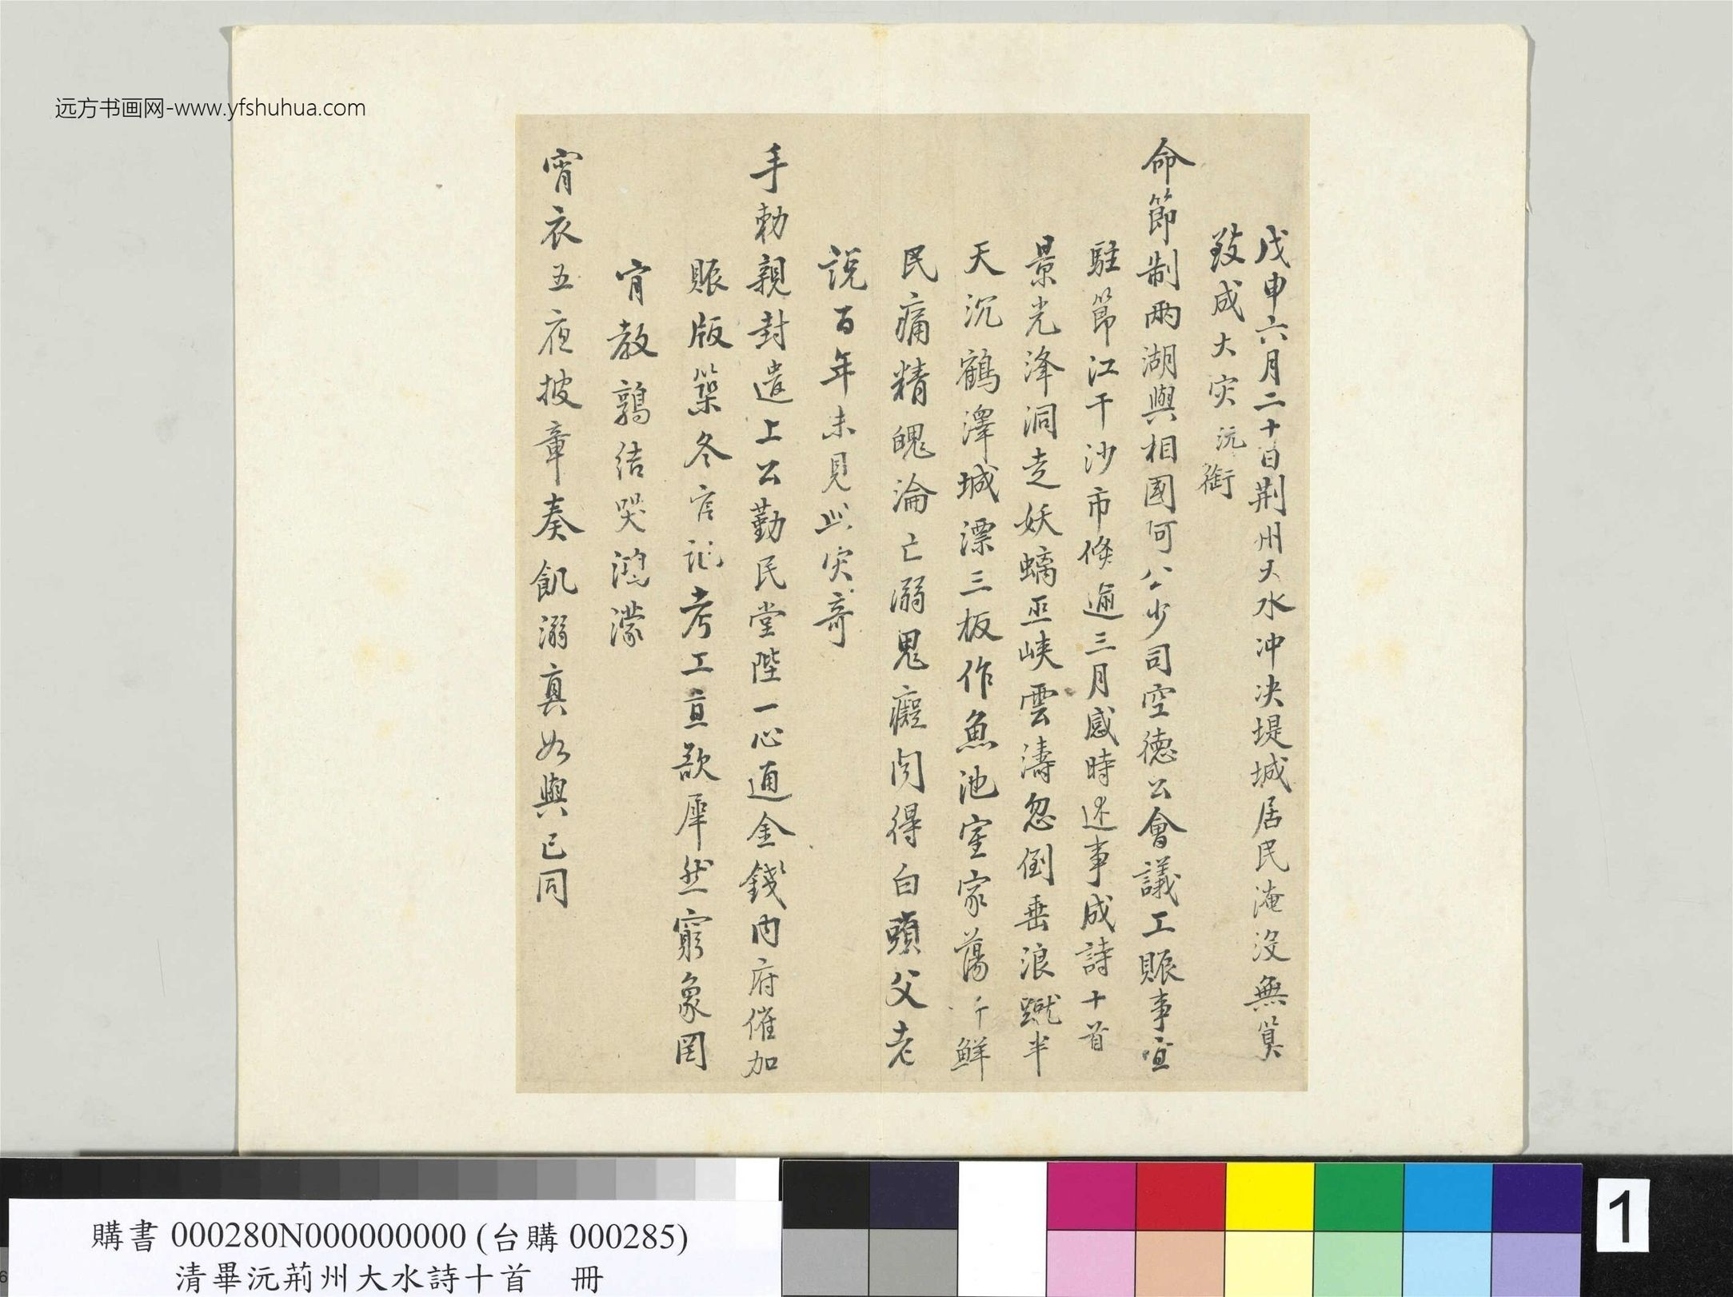 远方书画网-www.yfshuhua.com
戊申六月二十日荆州大水冲决堤城居民淹没無筭
致成大灾沅銜
命節制兩湖與相國阿公少司空德公會議工賑事宜
駐節江干沙市倏逾三月感時述事成詩十首
景光澤洞走妖螭巫峽雲濤忽倒垂浪蹴半
天沉鶴澤城漂三板作魚池室家蕩斤鮮
民痛精魄淪亡溺鬼癡閱得白頭父老
説百年未見此灾奇
手勅親封遣上公勤民堂陛一心通金錢內府催加
賑版築冬官記考工亘歌犀然窮象罔
肎教鶉结哭鴻濛
宵衣五夜披章奏飢溺真如與已同
購書 000280N000000000 (台購 000285)
清畢沅荊州大水詩十首 冊
1